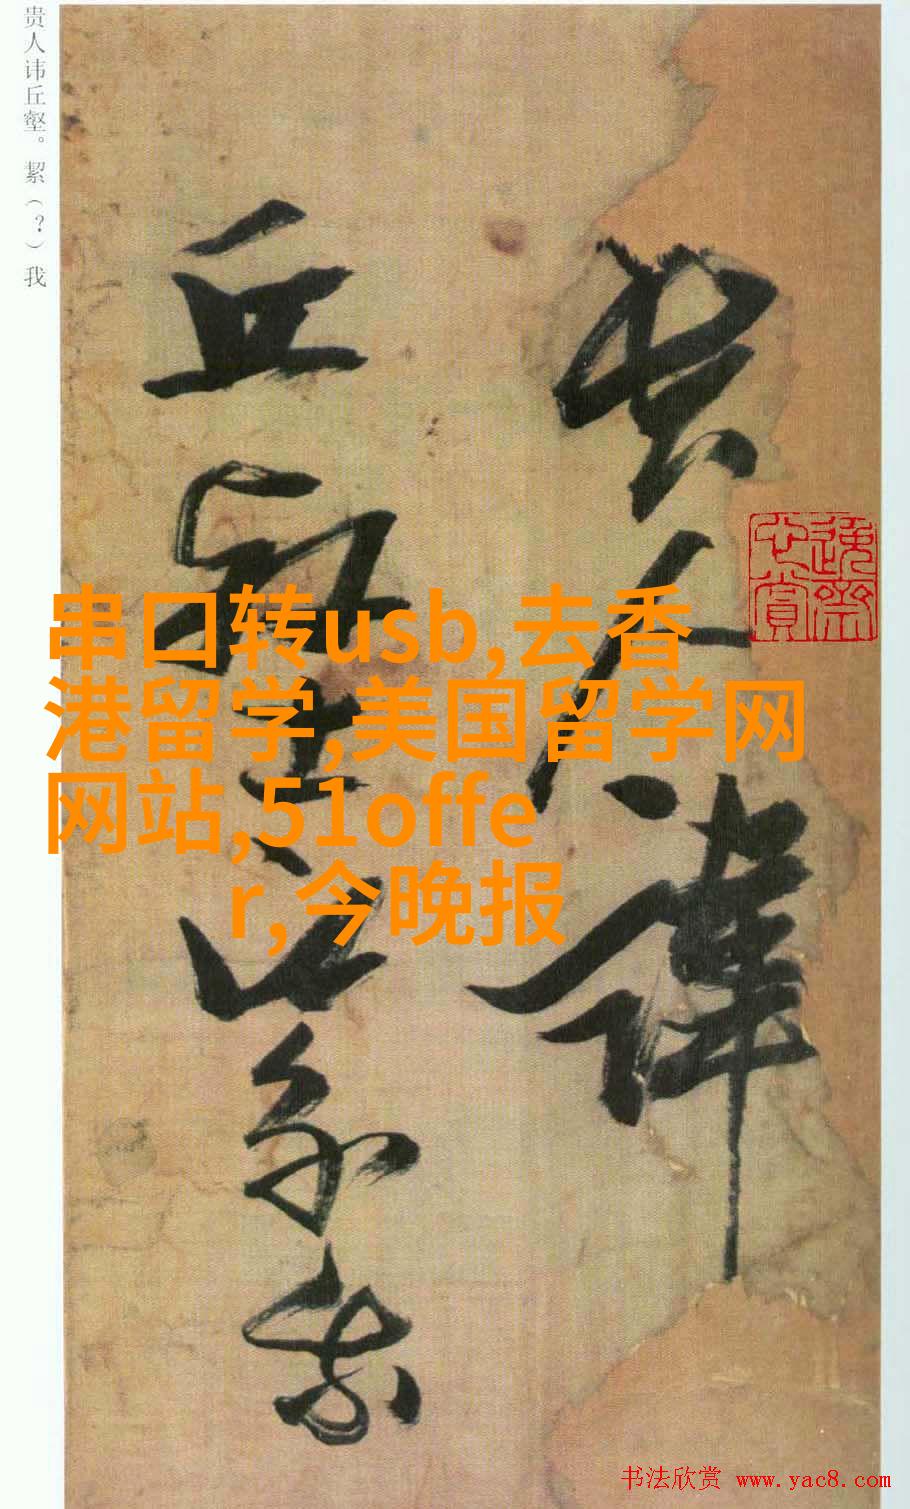 贵人讳丘壑。絜（？）我
贵人讳
丘壑絜我
串口转usb,去香
港留学,美国留学网
网站,51offe
r,今晚报
书法欣赏 www.yac8.com